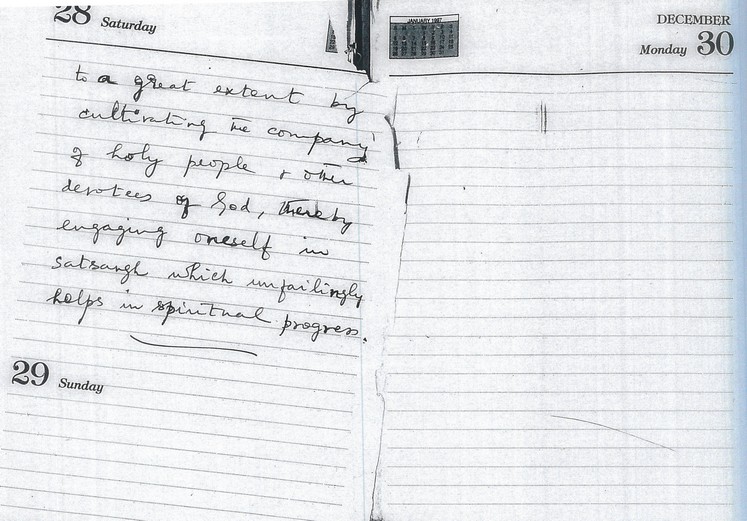 28 Saturday
to a great extent by
cultivating the company
of holy people & other
devotees of God, thereby
engaging oneself in
satsangh which unfailingly
helps in spiritual progress.
29 Sunday
JANUARY 1987
DECEMBER
Monday 30